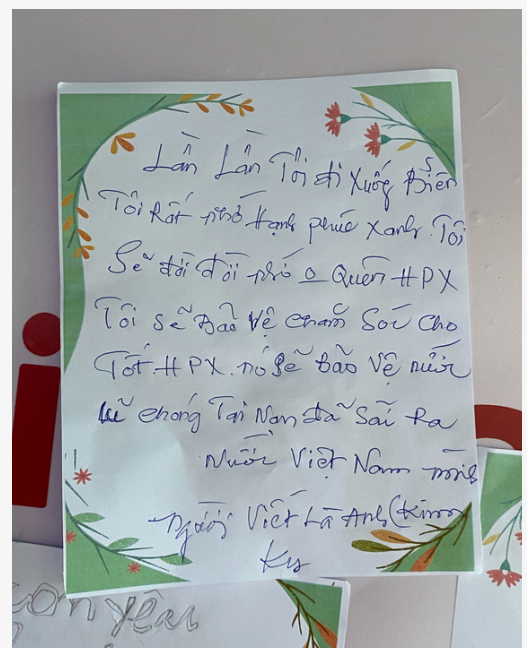 Lần Lần Tôi đi Xuốg Biển
Tôi Rất nhớ Hạnh phúc Xanh. Tôi
Sẽ đời đời nhớ 0 Quên HPX
Tôi sẽ Bảo Vệ chăm Sóc Cho
Tốt. HPX. nó sẽ bảo Vệ nước
lũ chống Tai Nan đã Sãi Ra
Nước Việt Nam mình
người Viết Là Anh (Kim
Ky
con yêu